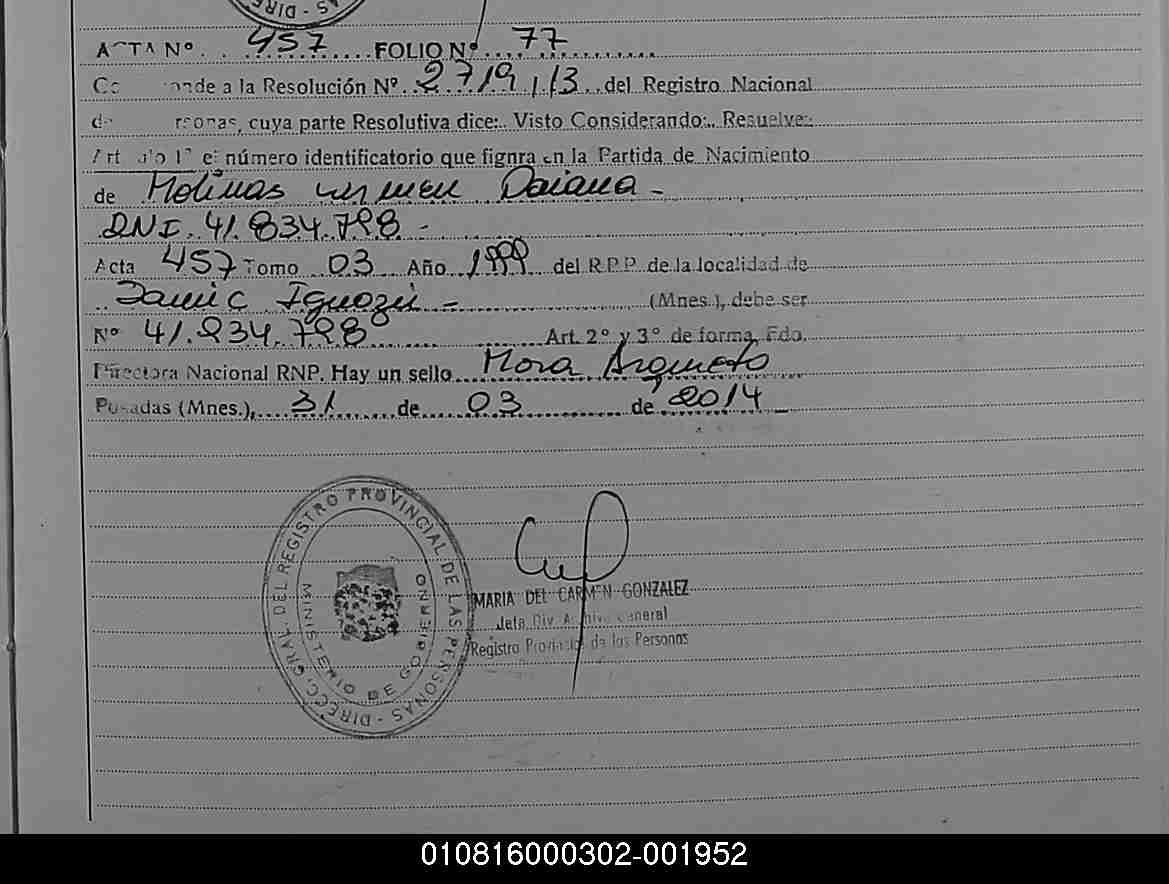 ACTA Nº. 457 FOLIO Nº. 77
a la Resolución Nº. 2719/13 del Registro Nacional
cuya parte Resolutiva dice: Visto Considerando: Resuelve:
1º el número identificatorio que fignra en la Partida de Nacimiento
de Molinas Daiana -
DNI. 41.834.798 -
Acta 457 Tomo 03 Año 1999 del R.P.P. de la localidad de
(Mnes.), debe ser
Nº 41.834.798 Art. 2º y 3º de forma, Fdo.
Directora Nacional RNP. Hay un sello Mora Arqueta
Posadas (Mnes.), 31 de 03 de 2014
DIRECC. GRAL. DEL REGISTRO PROVINCIAL DE LAS PERSONAS -
MINISTERIO DE GOBIERNO
MARIA DEL CARMEN GONZALEZ
Jefa Div. Archivo General
Registro Provincial de las Personas
010816000302-001952